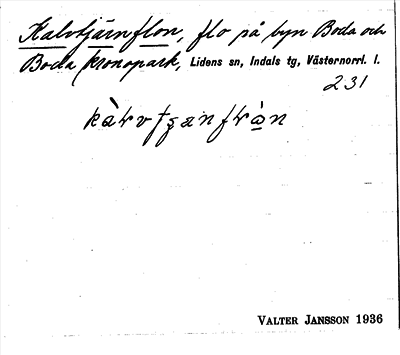 Kalvtjärnflon, flo på byn Boda och
Boda kronopark, Lidens sn, Indals tg, Västernorrl. l.
231
VALTER JANSSON 1936